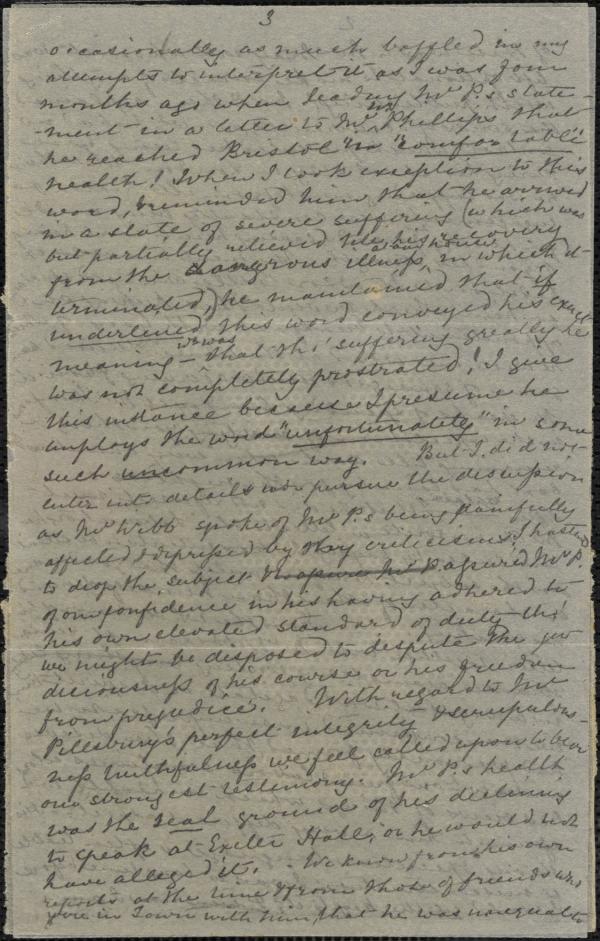 3
occasionally as much baffled in my
attempts to interpret it as I was four
months ago when reading Mr P.s state-
-ment in a letter to Mrs Phillips that
he reached Bristol in "comfortable
health! When I took exception to this
word, & reminded him that he arrived
in a state of severe suffering (which was
but partially relieved his recovery
from the dangerous illness in which it
terminated,) he maintained that if
underlined this word conveyed his exact
meaning – that tho' suffering greatly he
was not completely prostrated! I give
this instance because I presume he
employs the word "unfortunately" in some
such uncommon way. But I did not
enter into details nor pursue the discussion
as Mr Webb spoke of Mr P.s being painfully
affected & depressed by criticisms I hastened
to drop the subject & assured Mr P.
of our confidence in his having adhered to
his own elevated standard of duty tho'
we might be disposed to dispute the ju-
diciousness of his course or his freedom
from prejudice. With regard to Mr
Pillsbury's perfect integrity & scrupulous-
ness truthfulness we feel called upon to bear
our strongest testimony. Mr P.s health
was the real ground of his declining
to speak at Exeter Hall, or he would not
have alleged it. We know from his own
reports at the time & from those of friends who
were in Town with him, that he was unequal to